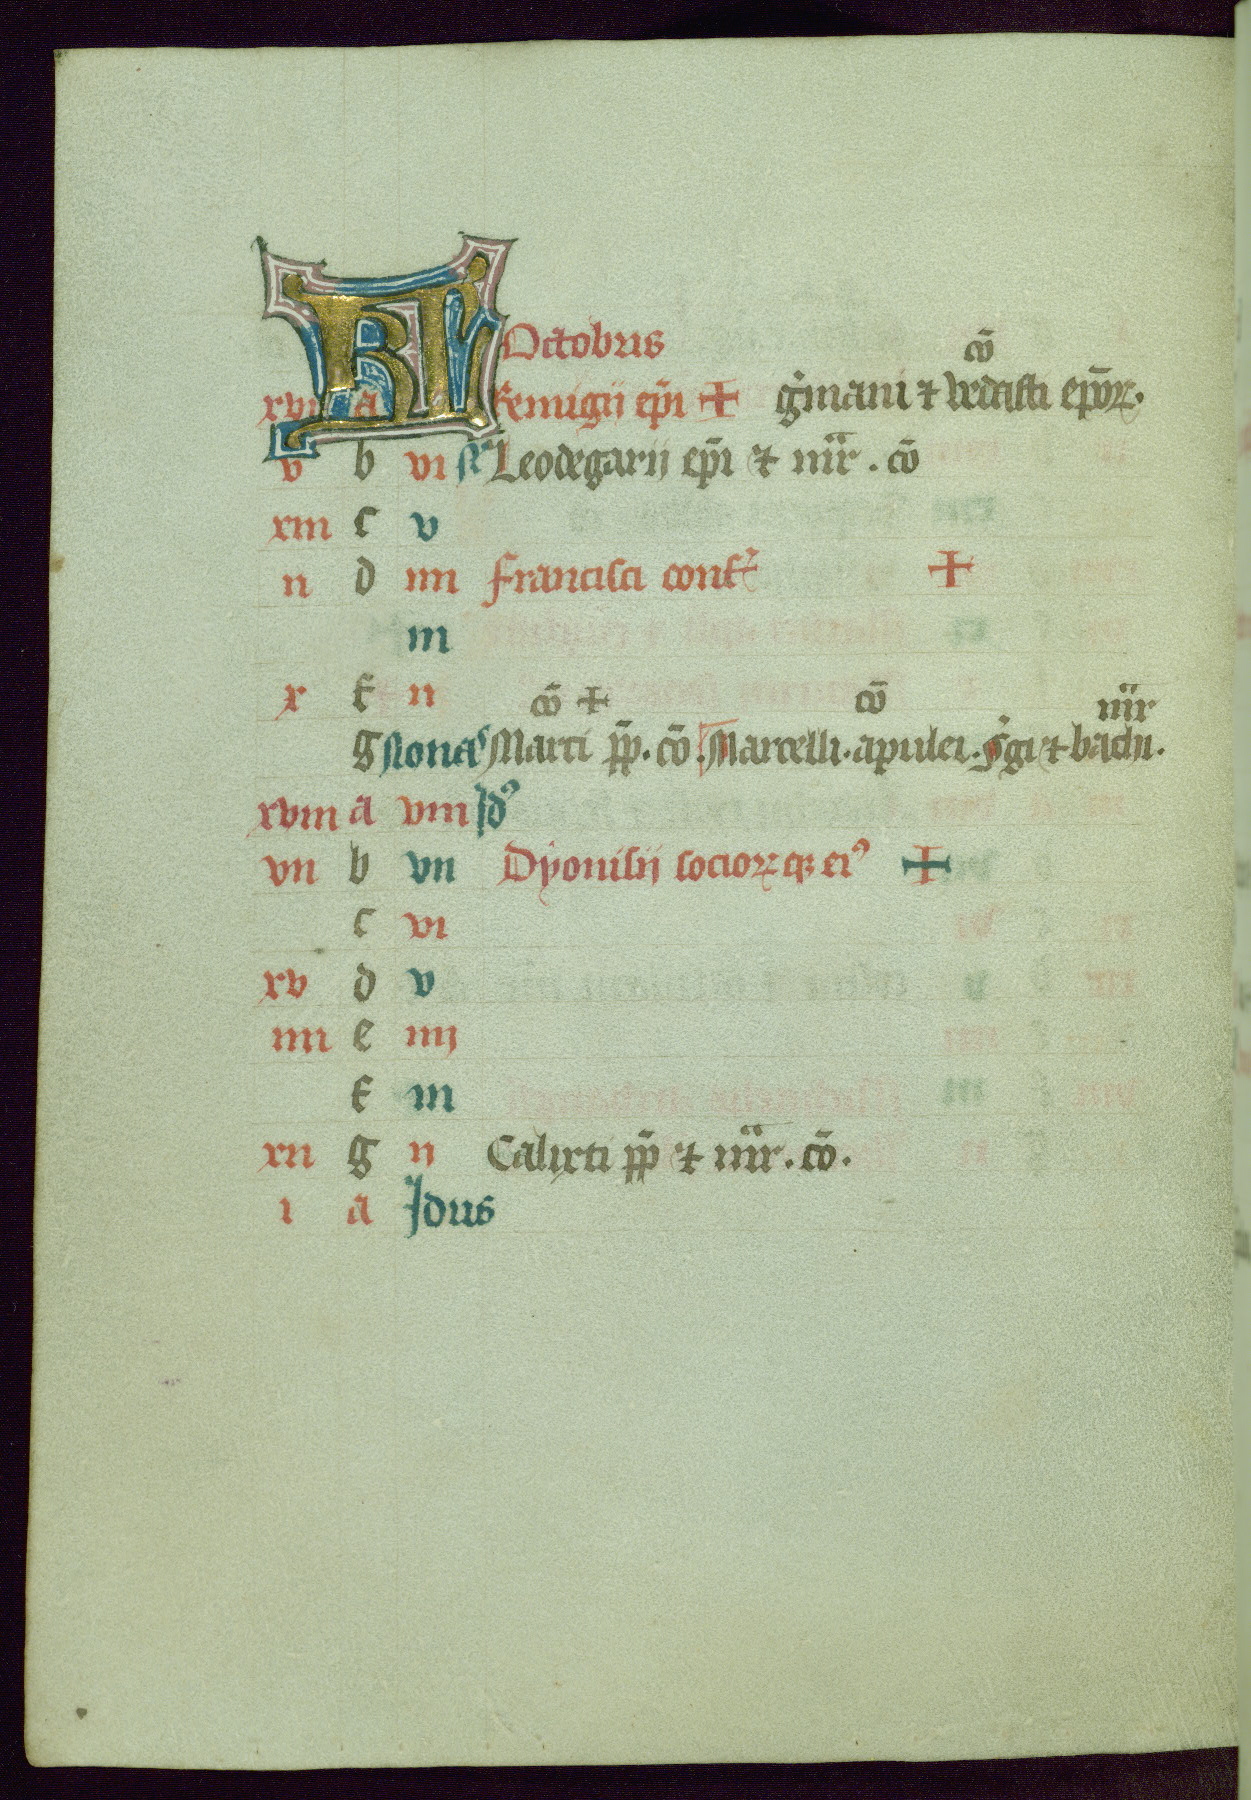 KL Octobris
cō
xvi a Remigii ep̄i + g̾mani ⁊ vedasti ep̄oꝝ.
v b vi Leodegarii ep̄i ⁊ mr̄. cō
xiii c v
ii d iiii francisci conf̾ +
iii
x f ii cō + cō mr̄
g Nonas Marci pp̄. cō. Marcelli. apulei. s̾gi ⁊ bachi.
xviii a viii Idꝰ
vii b vii Dyonisii socioꝝqꝫ eiꝰ +
c vi
xv d v
iiii e iiij
f iii
xii g ii Calixti pp̄ ⁊ mr̄. cō.
i a Idus